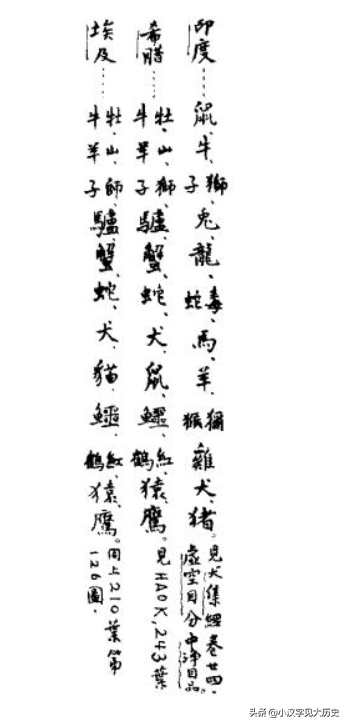 印度……鼠、牛、獅子、兔、龍、毒蛇、馬、羊、獼猴、雞、犬、猪。見大集經卷廿四,
虛空目分中淨目品。
希腊……牡牛、山羊、獅子、驢、蟹、蛇、犬、鼠、鱷、紅鶴、猿、鷹。見HAOK,243葉
埃及……牡牛、山羊、師子、驢、蟹、蛇、犬、貓、鱷、紅鶴、猿、鷹。同上210葉第
126圖.
头条 @小汉字见大历史